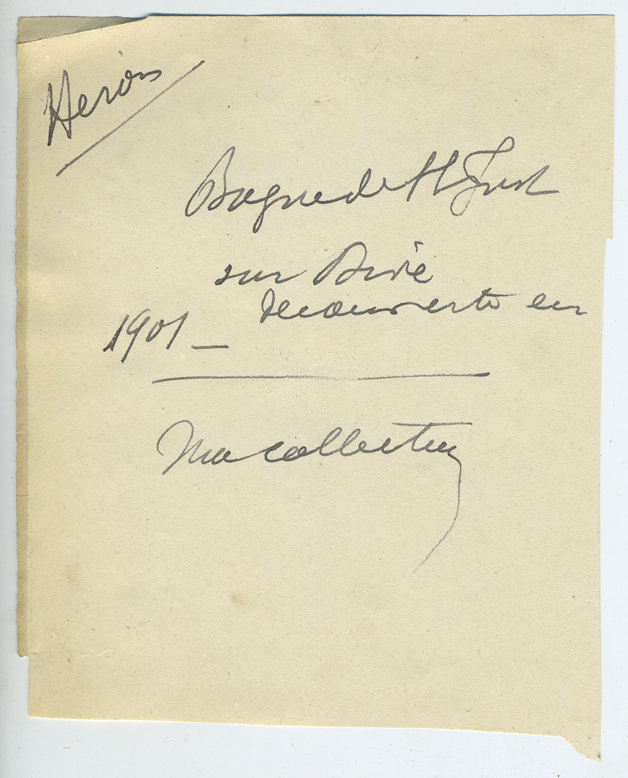 Heron
Bague de St Just
sur Dive
découverte en
1901 _
Ma collection